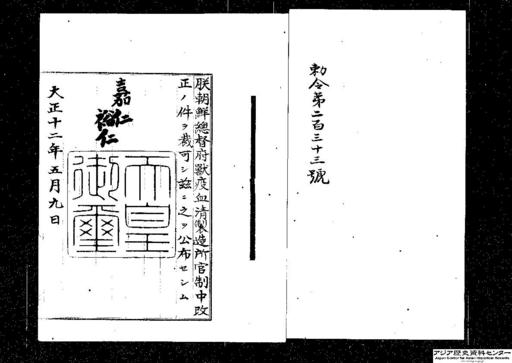 勅令第二百三十三號
朕朝鮮總督府獸疫血清製造所官制中改
正ノ件ヲ裁可シ茲ニ之ヲ公布セシム
嘉仁
裕仁
天皇
御璽
大正十二年五月九日
アジア歴史資料センター
Japan Center for Asian Historical Records